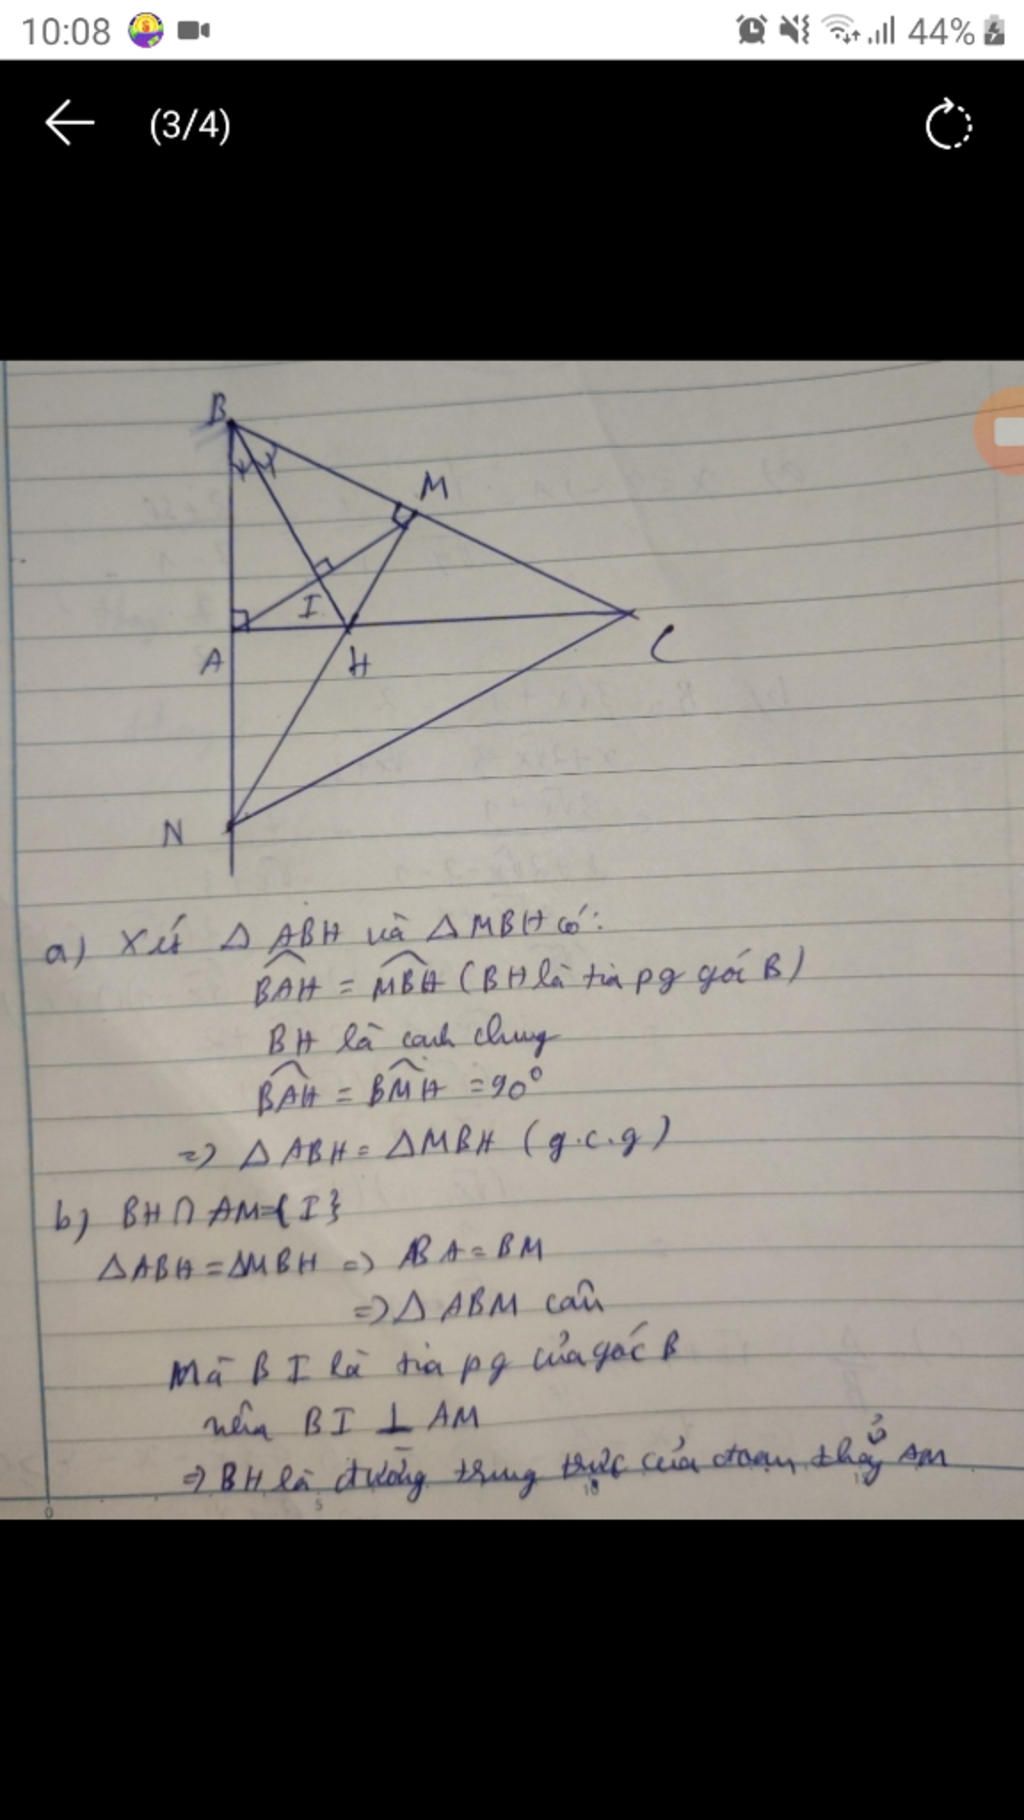 10:08
44%
(3/4)
B
M
I
A
H
C
N
a) Xét △ ABH và △ MBH có:
BAH = MBH (BH là tia pg góc B)
BH là cạnh chung
BAH = BMH = 90°
=> △ ABH = △MBH (g.c.g)
b) BH ∩ AM={I}
△ABH = △MBH => BA = BM
=> △ ABM cân
Mà BI là tia pg của góc B
nên BI ⊥ AM
=> BH là đường trung trực của đoạn thẳg AM